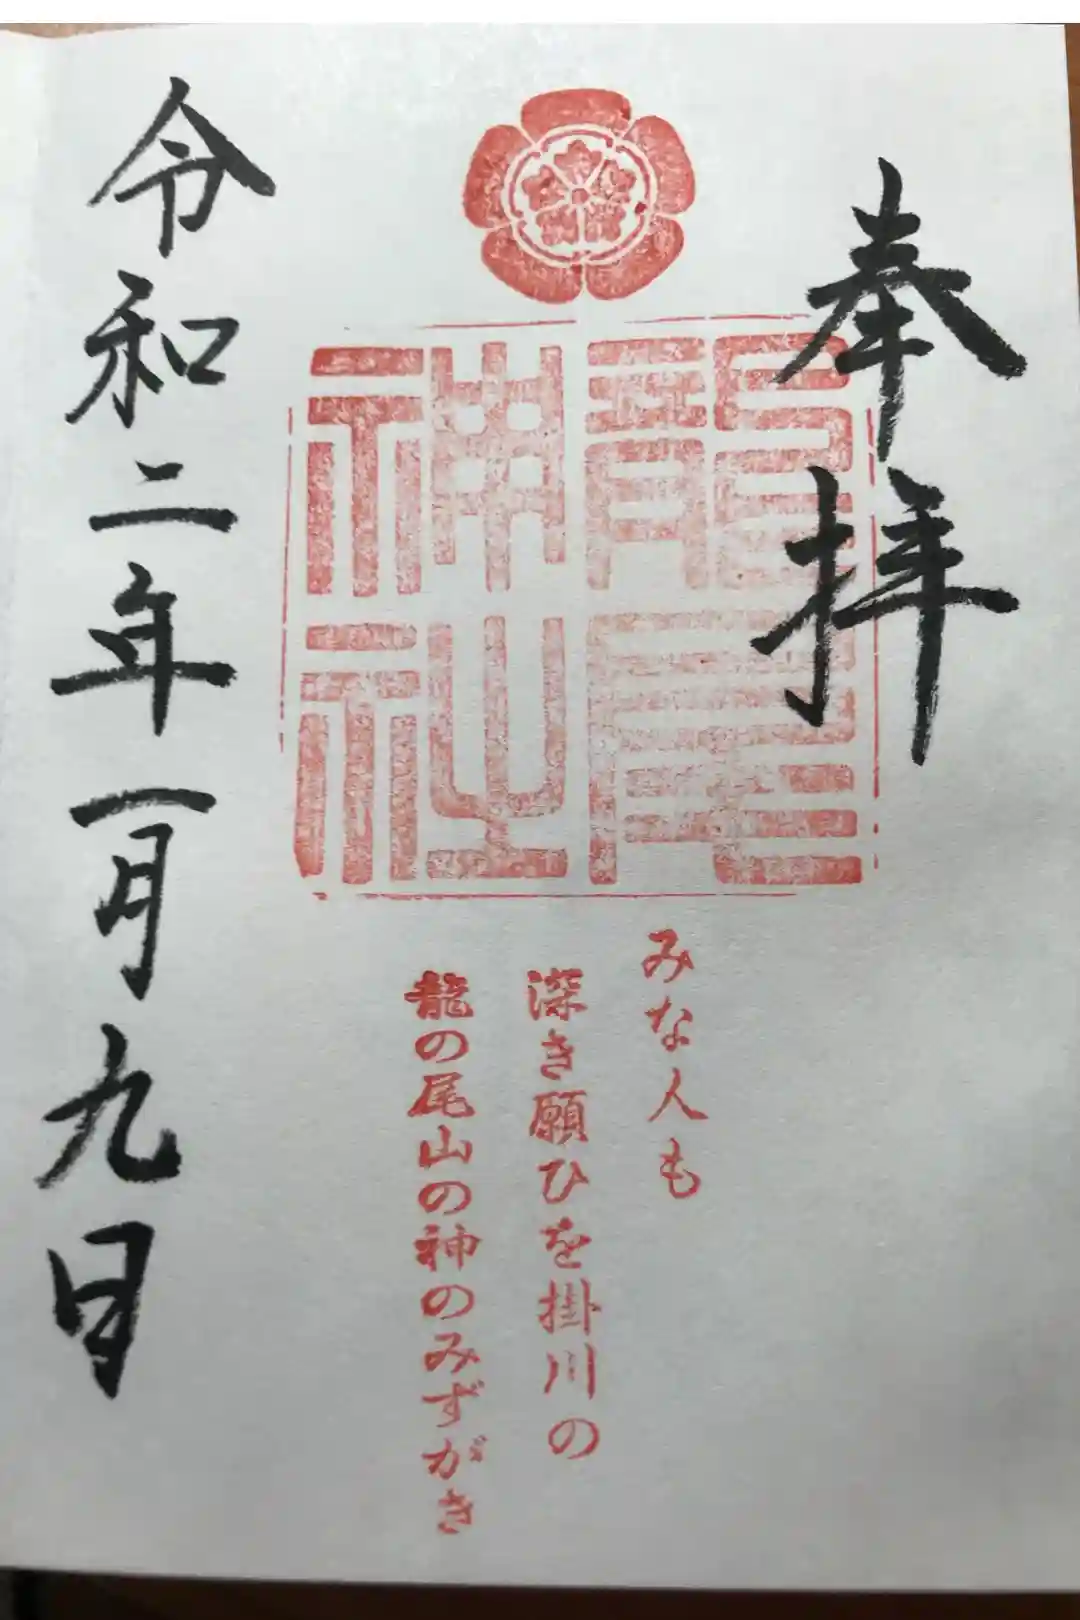 奉拝
龍尾
神社
みな人も
深き願ひを掛川の
龍の尾山の神のみずがき
令和二年一月九日